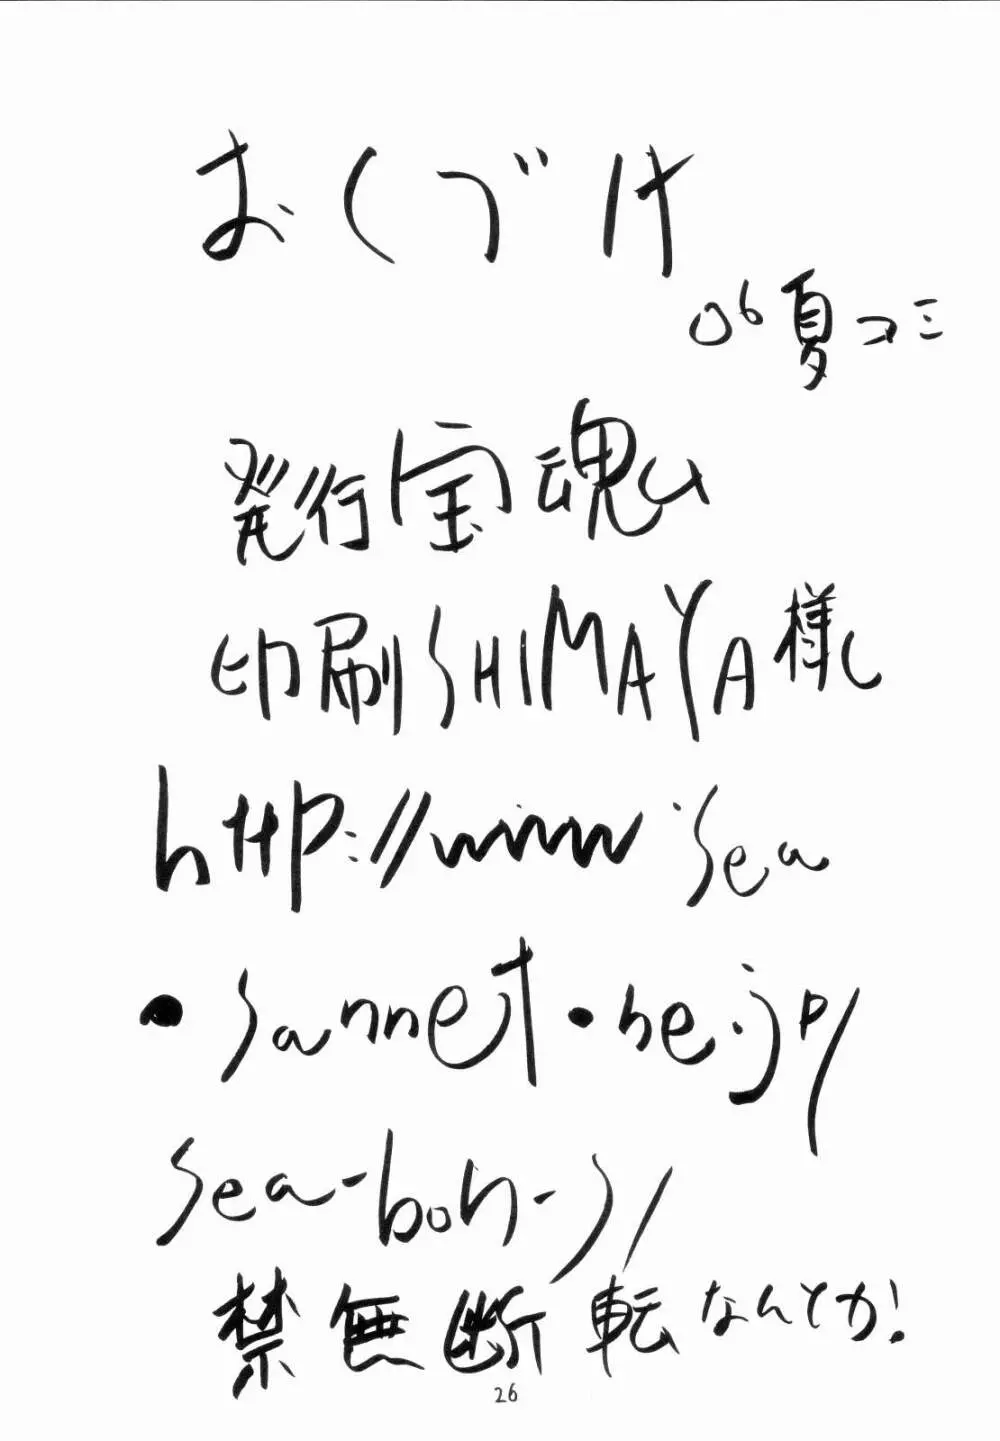 おくづけ
06夏コミ
発行宝魂
印刷SHIMAYA様
http://www.sea
・sannet・ne.jp/
sea-boh-s/
禁無断転なんとか!
26